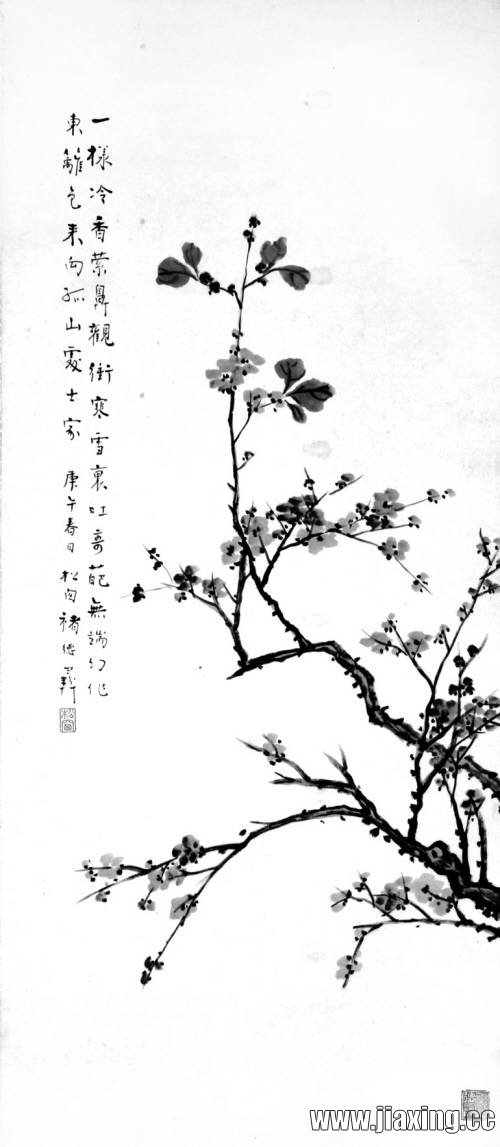 一樣冷香縈鼻觀衝寒雪裏吐奇葩無端幻作
東籬色來向孤山處士家 庚午春日 松囱 褚德彝
松窗
www.jiaxing.cc